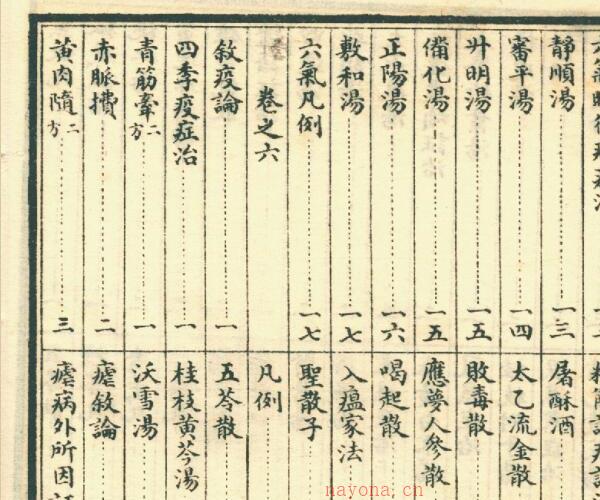 靜順湯 一三
審平湯 一四
升明湯 一五
備化湯 一五
正陽湯 一六
敷和湯 一七
六氣凡例 一七
卷之六
敘疫論 一
四季疫症治 一
青筋牽二方 一
赤脈攢 二
黃肉隨二方 三
屠酥酒
太乙流金散
敗毒散
應夢人參散
喝起散
入瘟家法
聖散子
凡例
五苓散
桂枝黃芩湯
沃雪湯
瘧敘論
瘧病外所因
nayona.cn